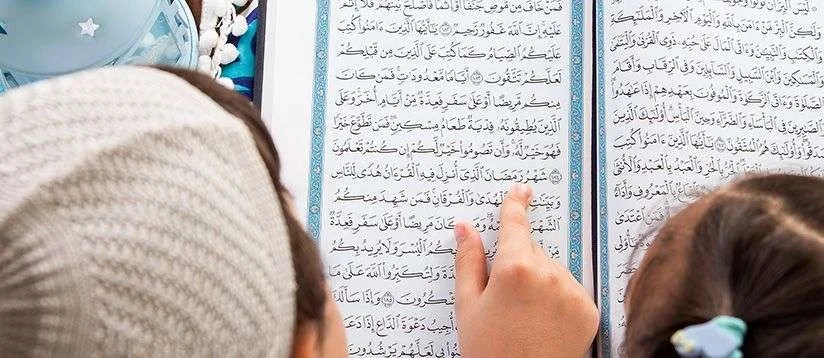 وَلَٰكِنَّ ٱلۡبِرَّ مَنۡ ءَامَنَ بِٱللَّهِ وَٱلۡيَوۡمِ ٱلۡأٓخِرِ وَٱلۡمَلَٰٓئِكَةِ
وَٱلۡكِتَٰبِ وَٱلنَّبِيِّـۧنَ وَءَاتَى ٱلۡمَالَ عَلَىٰ حُبِّهِۦ ذَوِي ٱلۡقُرۡبَىٰ وَٱلۡيَتَٰمَىٰ
وَٱلۡمَسَٰكِينَ وَٱبۡنَ ٱلسَّبِيلِ وَٱلسَّآئِلِينَ وَفِي ٱلرِّقَابِ وَأَقَامَ
ٱلصَّلَوٰةَ وَءَاتَى ٱلزَّكَوٰةَ وَٱلۡمُوفُونَ بِعَهۡدِهِمۡ إِذَا عَٰهَدُواْۖ
وَٱلصَّٰبِرِينَ فِي ٱلۡبَأۡسَآءِ وَٱلضَّرَّآءِ وَحِينَ ٱلۡبَأۡسِۗ أُوْلَٰٓئِكَ ٱلَّذِينَ
صَدَقُواْۖ وَأُوْلَٰٓئِكَ هُمُ ٱلۡمُتَّقُونَ ١٧٧ يَٰٓأَيُّهَا ٱلَّذِينَ ءَامَنُواْ كُتِبَ
ٱلۡحُرُّ بِٱلۡحُرِّ وَٱلۡعَبۡدُ بِٱلۡعَبۡدِ وَٱلۡأُنثَىٰ
بِٱلۡمَعۡرُوفِ وَأَدَآءٌ
ٱعۡتَدَىٰ
يَٰٓأُوْلِي
فَمَنۡ خَافَ مِن مُّوصٖ جَنَفًا أَوۡ إِثۡمٗا فَأَصۡلَحَ بَيۡنَهُمۡ فَلَآ إِثۡمَ
عَلَيۡهِۚ إِنَّ ٱللَّهَ غَفُورٞ رَّحِيمٞ ١٨٢ يَٰٓأَيُّهَا ٱلَّذِينَ ءَامَنُواْ كُتِبَ
عَلَيۡكُمُ ٱلصِّيَامُ كَمَا كُتِبَ عَلَى ٱلَّذِينَ مِن قَبۡلِكُمۡ
لَعَلَّكُمۡ تَتَّقُونَ ١٨٣ أَيَّامٗا مَّعۡدُودَٰتٖۚ فَمَن كَانَ
مِنكُم مَّرِيضًا أَوۡ عَلَىٰ سَفَرٖ فَعِدَّةٞ مِّنۡ أَيَّامٍ أُخَرَۚ وَعَلَى
ٱلَّذِينَ يُطِيقُونَهُۥ فِدۡيَةٞ طَعَامُ مِسۡكِينٖۖ فَمَن تَطَوَّعَ خَيۡرٗا
فَهُوَ خَيۡرٞ لَّهُۥۚ وَأَن تَصُومُواْ خَيۡرٞ لَّكُمۡ إِن كُنتُمۡ تَعۡلَمُونَ
١٨٤ شَهۡرُ رَمَضَانَ ٱلَّذِيٓ أُنزِلَ فِيهِ ٱلۡقُرۡءَانُ هُدٗى لِّلنَّاسِ
وَبَيِّنَٰتٖ ٱلۡهُدَىٰ وَٱلۡفُرۡقَانِۚ فَمَن شَهِدَ مِنكُمُ
ٱلشَّهۡرَ كَانَ مَرِيضًا أَوۡ عَلَىٰ سَفَرٖ فَعِدَّةٞ
مِّنۡ ٱلۡيُسۡرَ وَلَا يُرِيدُ بِكُمُ
وَلِتُكَبِّرُواْ ٱللَّهَ عَلَىٰ مَا
تَشۡكُرُونَ ١٨٥ وَإِذَا سَأَلَكَ
أُجِيبُ دَعۡوَةَ ٱلدَّاعِ إِذَا
بِي لَعَلَّهُمۡ يَرۡشُدُونَ